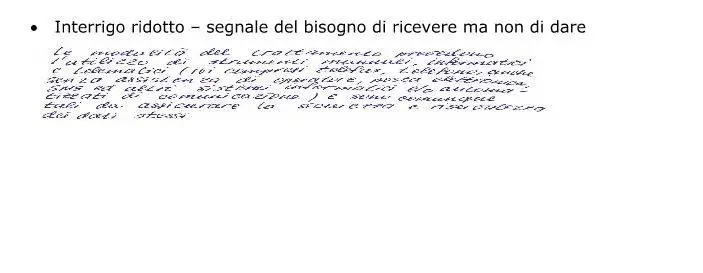 • Interrigo ridotto – segnale del bisogno di ricevere ma non di dare
Le modalità del trattamento prevedono
l'utilizzo di strumenti manuali, informatici
e telematici (ivi compresi telefax, telefono, anche
senza assistenza di operatore, posta elettronica,
SMS ed altri sistemi informatici e/o automa-
tizzati di comunicazione) e sono comunque
tali da assicurare la sicurezza e riservatezza
dei dati stessi